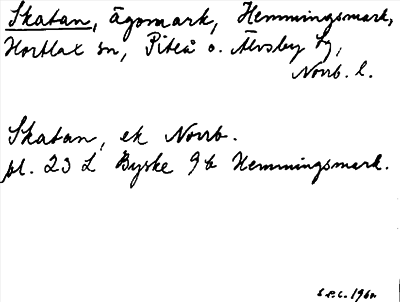 Skatan, ägomark, Hemmingsmark,
Hortlax sn, Piteå o. Älvsby tg,
Norrb. l.
Skatan, ek Norrb.
pl. 23 L Byske 9 b Hemmingsmark.